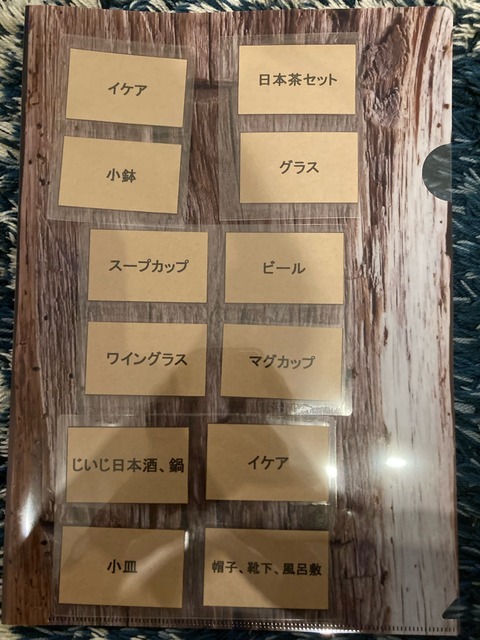 イケア
日本茶セット
小鉢
グラス
スープカップ
ビール
ワイングラス
マグカップ
じいじ日本酒、鍋
イケア
小皿
帽子、靴下、風呂敷